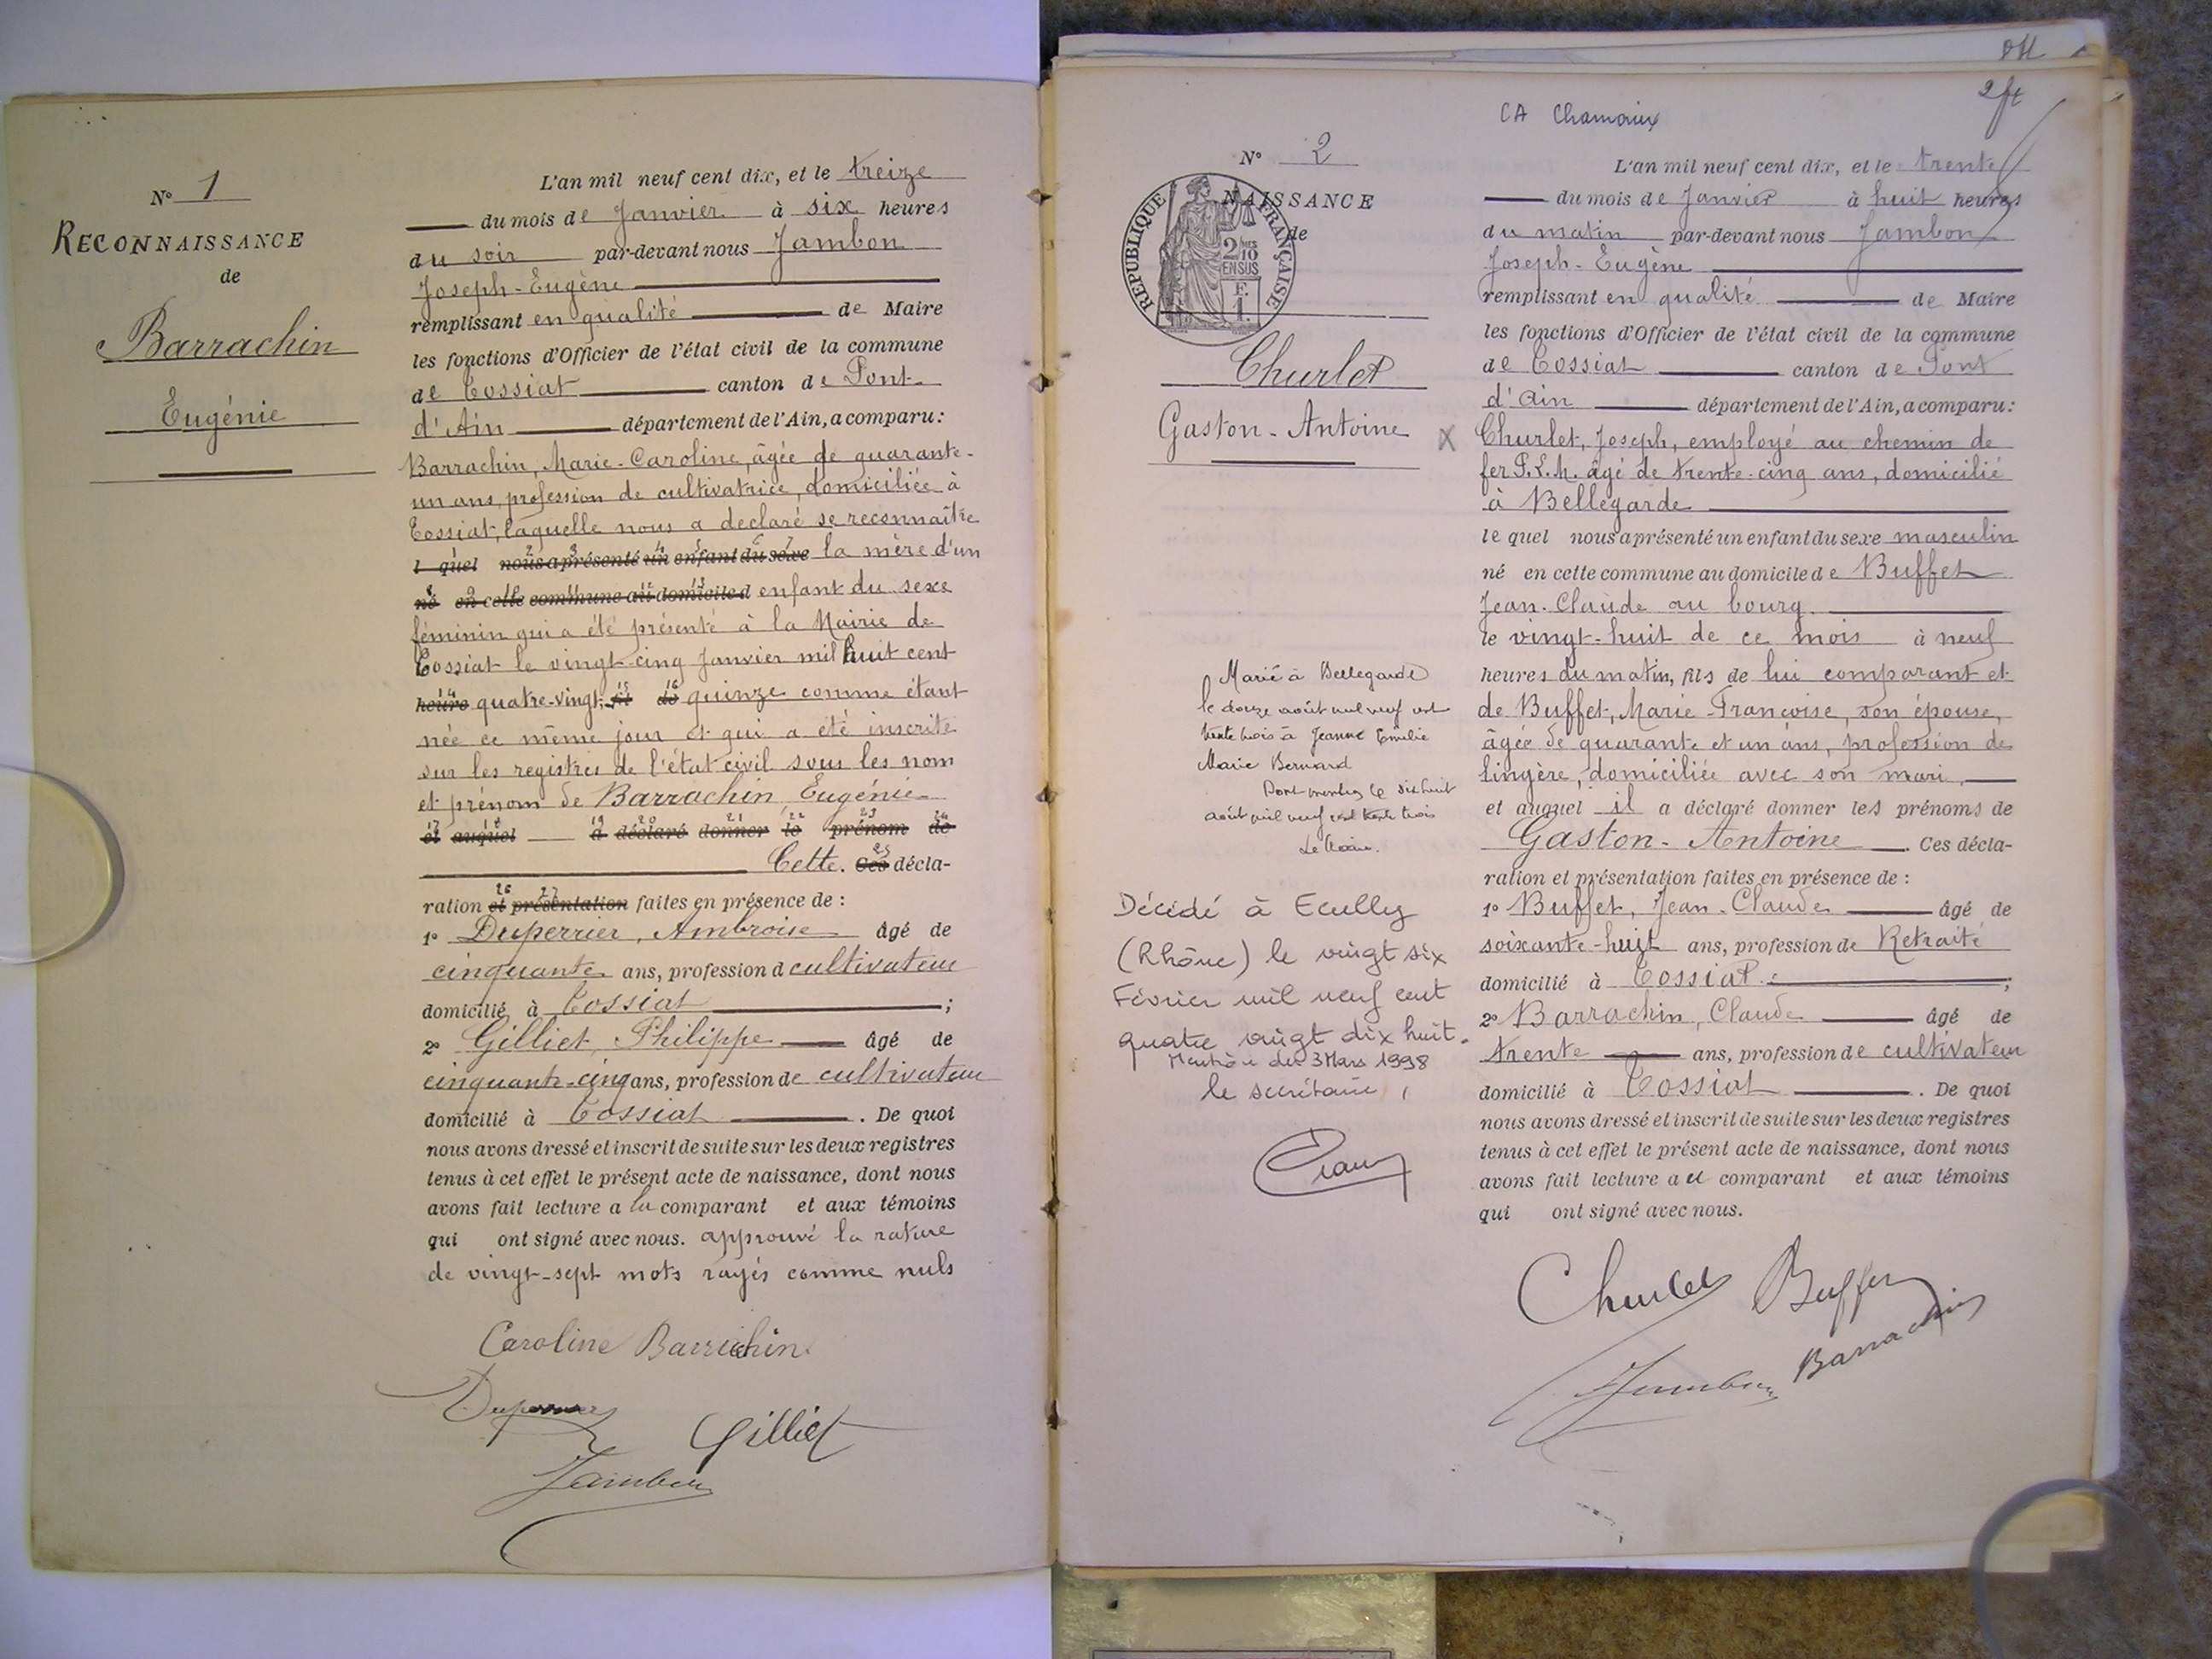 N° 1
RECONNAISSANCE
de
Barrachin
Eugénie
L'an mil neuf cent dix, et le treize
du mois de Janvier à six heures
du soir par-devant nous Jambon
Joseph-Eugène
remplissant en qualité de Maire
les fonctions d'Officier de l'état civil de la commune
de Tossiat canton de Pont-
d'Ain département de l'Ain, a comparu:
Barrachin, Marie-Caroline, âgée de quarante-
un ans, profession de cultivatrice, domiciliée à
Tossiat, laquelle nous a déclaré se reconnaître
l quel nous a présenté un enfant du sexe la mère d'un
né en cette commune au domicile d enfant du sexe
féminin qui a été présenté à la Mairie de
Tossiat le vingt-cinq Janvier mil huit cent
heure quatre-vingt- fil de quinze comme étant
née ce même jour et qui a été inscrite
sur les registres de l'état civil sous les nom
et prénom de Barrachin Eugénie
et auquel a déclaré donner le prénom de
Cette. Ces décla-
ration et présentation faites en présence de :
1° Duperrier, Ambroise âgé de
cinquante ans, profession d cultivateur
domicilié à Tossiat ;
2° Gilliet, Philippe âgé de
cinquante-cinq ans, profession de cultivateur
domicilié à Tossiat . De quoi
nous avons dressé et inscrit de suite sur les deux registres
tenus à cet effet le présent acte de naissance, dont nous
avons fait lecture a la comparant et aux témoins
qui ont signé avec nous. approuvé la rature
de vingt-sept mots rayés comme nuls
Caroline Barrachin
Duperrier
Gilliet
Jambon
2 ft
CA Chamoux
N° 2
NAISSANCE
de
RÉPUBLIQUE FRANÇAISE
2/10
EN SUS
F.
1.
Churlet
Gaston-Antoine
X
Marié à Bellegarde
le douze août mil neuf cent
trente trois à Jeanne Emilie
Marie Bernard
Dont mention le dix huit
août mil neuf cent trente trois
Le Maire.
Décédé à Ecully
(Rhône) le vingt six
Février mil neuf cent
quatre vingt dix huit.
Mention du 3 Mars 1998
le secrétaire,
L'an mil neuf cent dix, et le trente
du mois de Janvier à huit heures
du matin par-devant nous Jambon
Joseph-Eugène
remplissant en qualité de Maire
les fonctions d'Officier de l'état civil de la commune
de Tossiat canton de Pont
d'Ain département de l'Ain, a comparu:
Churlet, Joseph, employé au chemin de
fer P.L.M. âgé de trente-cinq ans, domicilié
à Bellegarde
le quel nous a présenté un enfant du sexe masculin
né en cette commune au domicile de Buffet
Jean-Claude au bourg.
le vingt-huit de ce mois à neuf
heures du matin, fils de lui comparant et
de Buffet, Marie-Françoise, son épouse,
âgée de quarante et un ans, profession de
lingère, domiciliée avec son mari,
et auquel il a déclaré donner les prénoms de
Gaston-Antoine . Ces décla-
ration et présentation faites en présence de :
1° Buffet, Jean-Claude âgé de
soixante-huit ans, profession de Retraité
domicilié à Tossiat ;
2° Barrachin, Claude âgé de
trente ans, profession de cultivateur
domicilié à Tossiat . De quoi
nous avons dressé et inscrit de suite sur les deux registres
tenus à cet effet le présent acte de naissance, dont nous
avons fait lecture a u comparant et aux témoins
qui ont signé avec nous.
Churlet Buffet
Jambon Barrachin